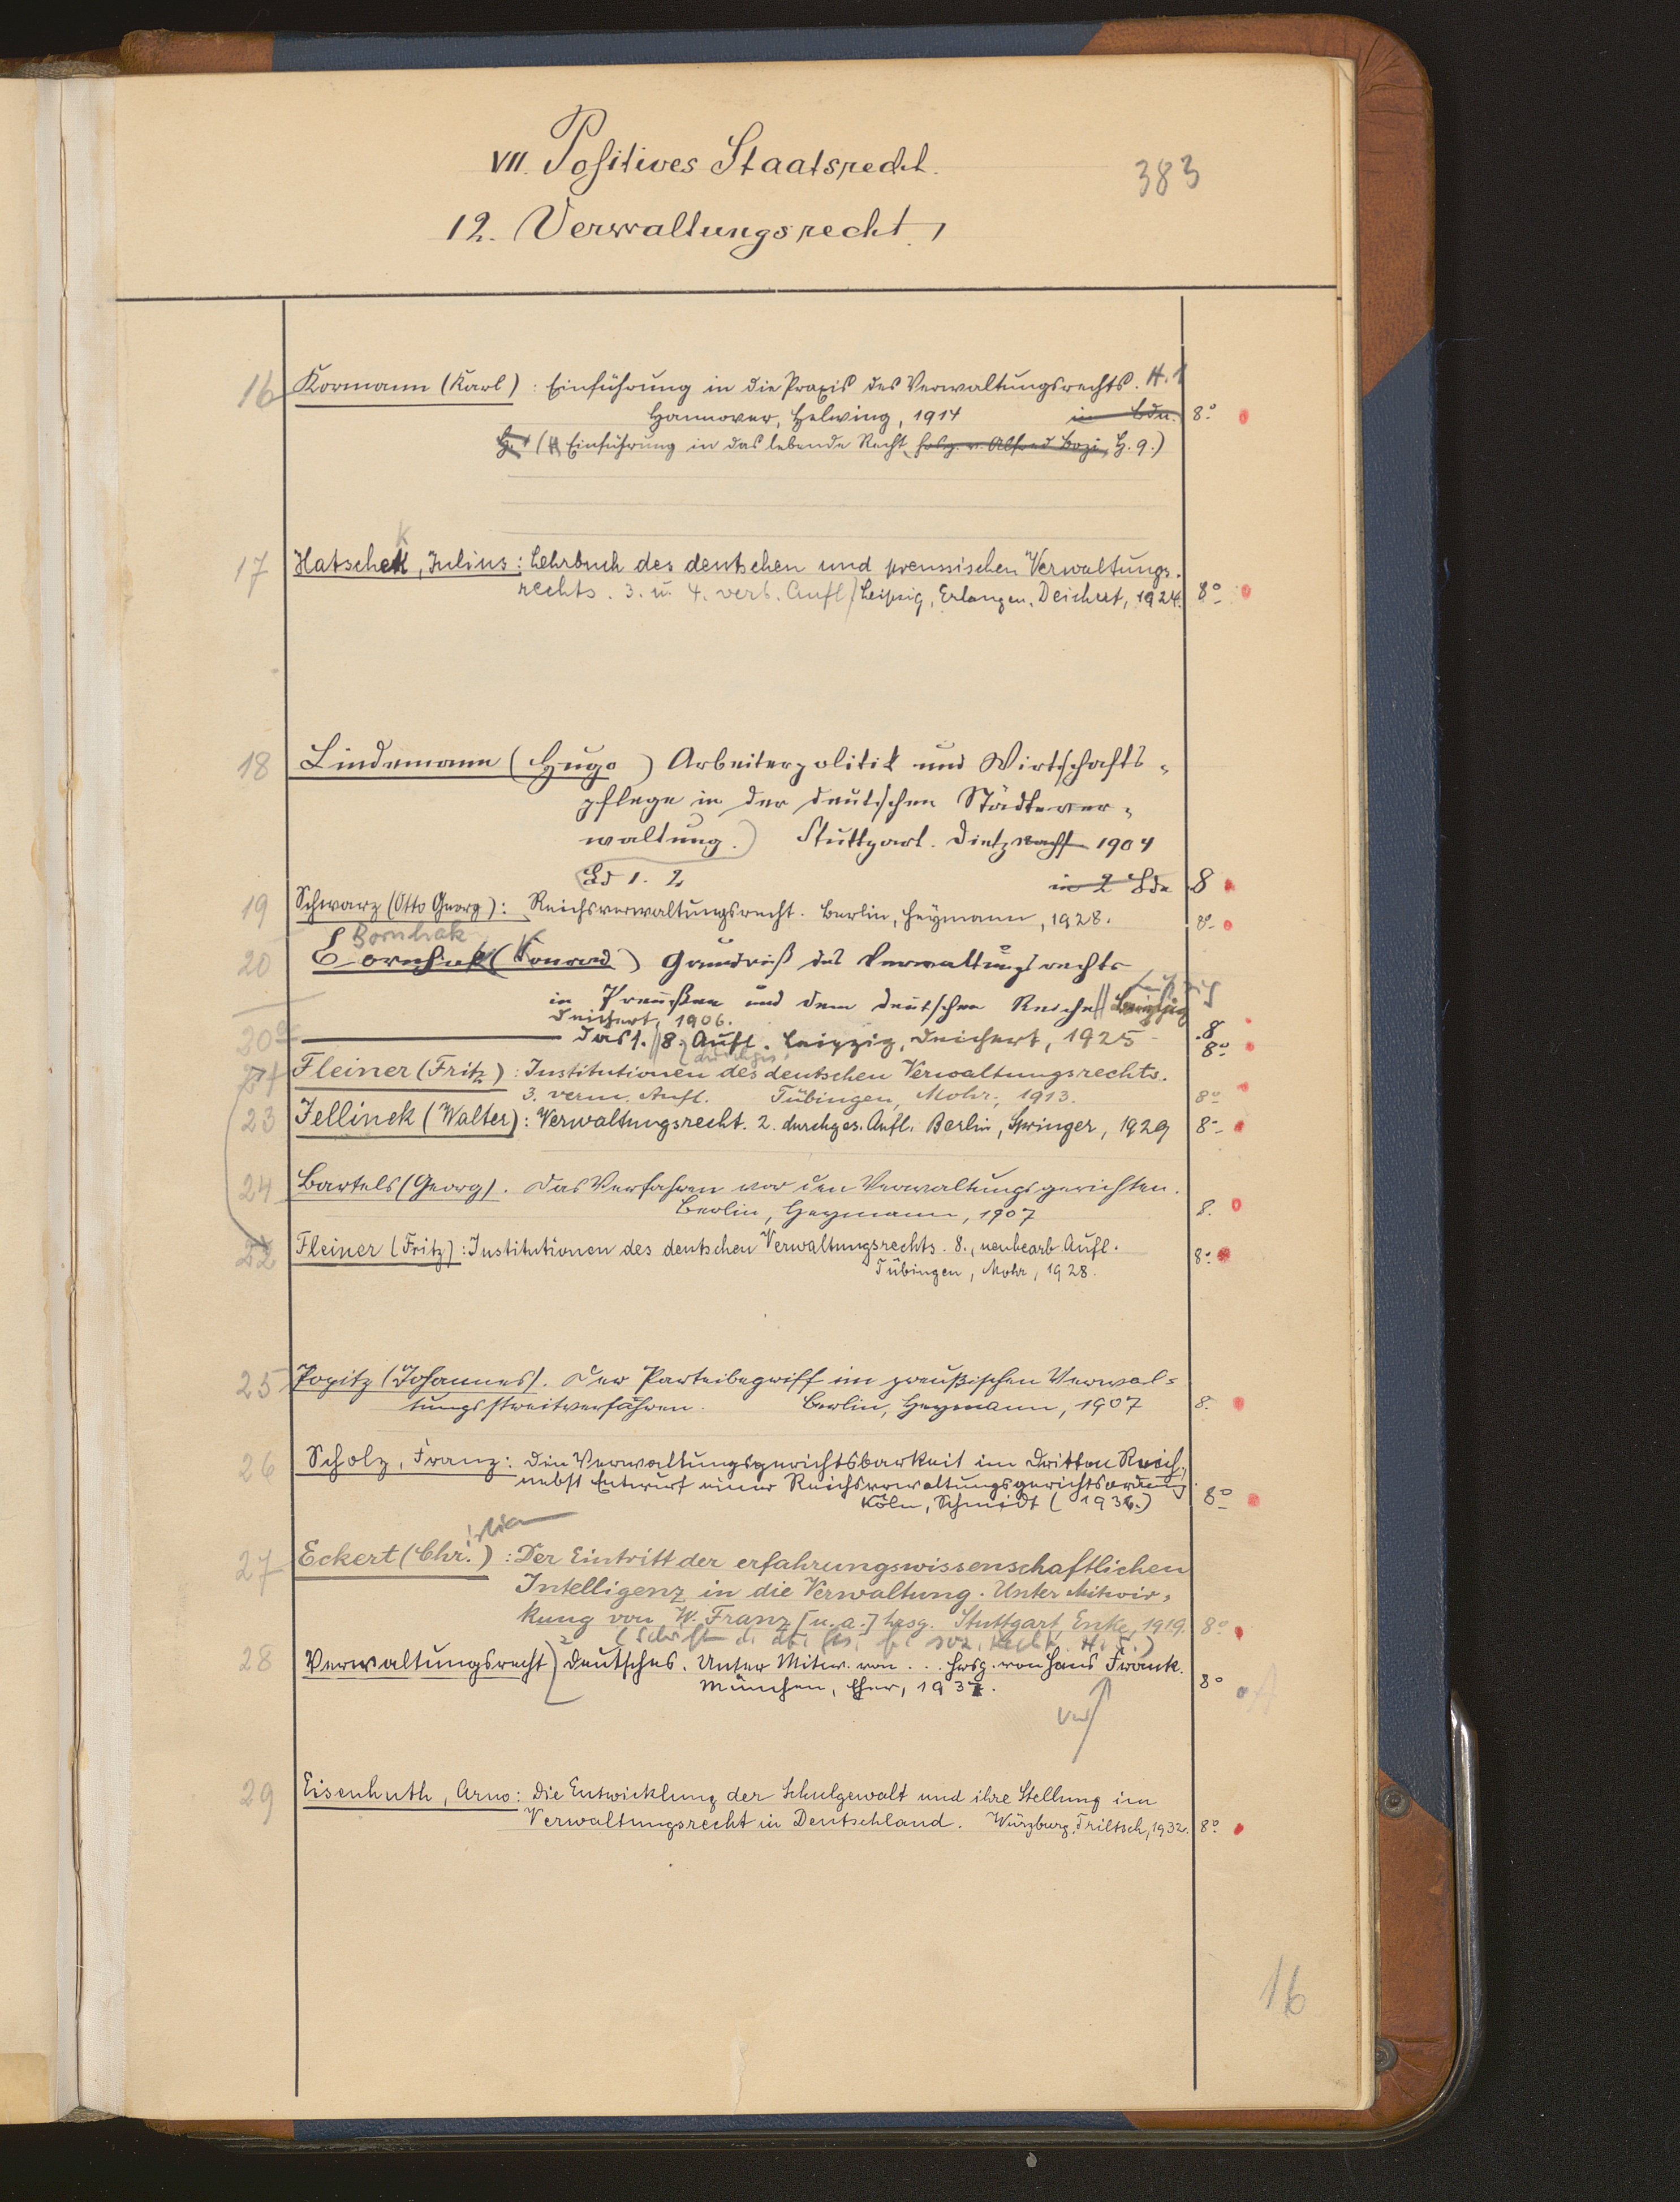 VII. Positives Staatsrecht.
383
12. Verwaltungsrecht.
16 Kormann (Karl): Einführung in die Praxis des Verwaltungsrechts. H. 1
Hannover, Helwing, 1914 in Bdn. 8°
H. 1 (Einführung in das lebende Recht, hrsg. v. Alfred Bozi, H. 9.)
17 Hatschek, Julius: Lehrbuch des deutschen und preussischen Verwaltungs-
rechts. 3. u. 4. verb. Aufl. Leipzig, Erlangen, Deichert, 1924. 8°
18 Lindemann (Hugo) Arbeiterpolitik und Wirtschafts-
pflege in der deutschen Städtever-
waltung.) Stuttgart. Dietz Nachf 1904
Bd 1. 2 in 2 Bde 8
19 Schwarz (Otto Georg): Reichsverwaltungsrecht. Berlin, Heymann, 1928. 8°
Bornhak
20 Bornhak (Konrad) Grundriß des Verwaltungsrechts
in Preußen und dem deutschen Reiche Leipzig
Deichert, 1906. 8
20a Dass. 8. Aufl. Leipzig, Deichert, 1925 8°
21 Fleiner (Fritz): Institutionen des deutschen Verwaltungsrechts.
3. verm. Aufl. Tübingen, Mohr, 1913. 8°
23 Jellinek (Walter): Verwaltungsrecht. 2. durchges. Aufl. Berlin, Springer, 1929 8°
24 Bartels (Georg). Das Verfahren vor den Verwaltungsgerichten.
Berlin, Heymann, 1907 8.
22 Fleiner (Fritz): Institutionen des deutschen Verwaltungsrechts. 8., neubearb. Aufl.
Tübingen, Mohr, 1928. 8°
25 Popitz (Johannes). Der Parteibegriff im preußischen Verwal-
tungsstreitverfahren. Berlin, Heymann, 1907 8.
26 Scholz, Franz: Die Verwaltungsgerichtsbarkeit im Dritten Reich,
nebst Entwurf einer Reichsverwaltungsgerichtsordnung.
Köln, Schmidt (1936.) 8°
27 Eckert (Christian): Der Eintritt der erfahrungswissenschaftlichen
Intelligenz in die Verwaltung. Unter Mitwir-
kung von W. Franz [u. a.] hrsg. Stuttgart, Enke, 1919. 8°
28 Verwaltungsrecht) Deutsches. Unter Mitw. von ... hrsg. von Hans Frank.
München, Eher, 1937. 8°
29 Eisenhuth, Arno: Die Entwicklung der Schulgewalt und ihre Stellung im
Verwaltungsrecht in Deutschland. Würzburg, Triltsch, 1932. 8°
16